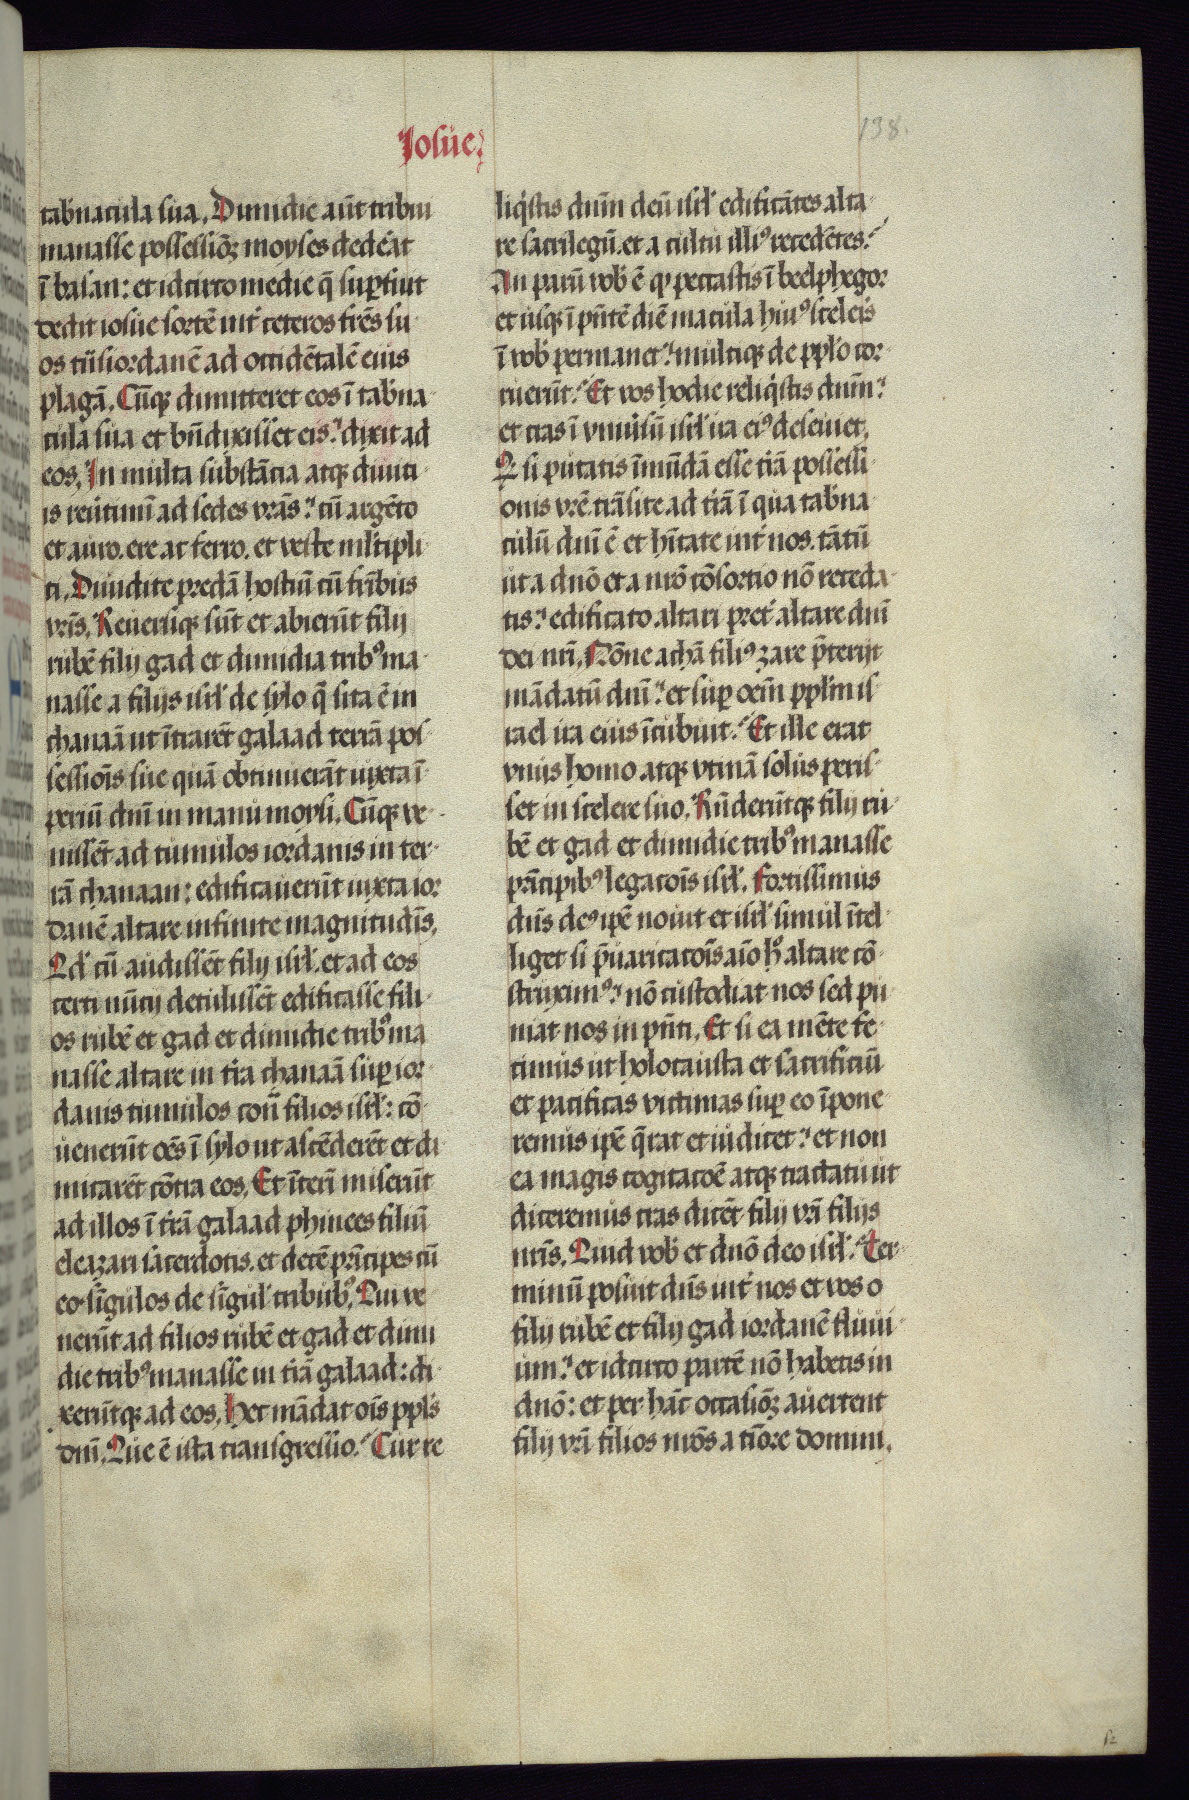 Iosue
138.
tab̅nacula sua. Dimidie aūt tribui
manasse possessiōꝫ moyses dedeāt
ī basan: et idcirco medie q̄ suꝑfuit
dedit iosue sortē int̅ ceteros fr̄es su
os tn̄siordanē ad occidētalē eius
plagā. Cūqꝫ dimitteret eos ī tab̅na
cula sua et bn̄dixisset eis: dixit ad
eos. In multa substācia atqꝫ diuici
is reūtimī ad sedes vrās: cū argēto
et auro. ere ac ferro. et veste ml̄tipli
ci. Diuidite predā hostiū cū fr̄ibus
vrīs. Reuersiqꝫ sūt et abierūt filij
rubē filij gad et dimidia tribꝰ ma
nasse a filijs isrl̄ de sylo q̄ sita ē in
chanaā ut ītrarēt galaad terrā pos
sessiōis sue quā obtinuerāt iuxta ī
periū dn̄i in manu moysi. Cūqꝫ ve
nissēt ad tumulos iordanis in ter
rā chanaan: edificauerūt iuxta ior
danē altare infinite magnitudīs.
Qd̄ cū audissēt filij isrl̄. et ad eos
certi nūcij detulissēt edificasse fili
os rubē et gad et dimidie tribꝰ ma
nasse altare in t̄ra chanaā suꝑ ior
danis tumulos cont̄ filios isrl̄: cō
uenerūt oēs ī sylo ut ascēderēt et di
micarēt cōtra eos. Et īterī miserūt
ad illos ī t̄rā galaad phinees filiū
eleazari sacerdotis. et decē prīcipes cū
eo. sīgulos de sīgul̄ tribubꝰ. Qui ve
nerūt ad filios rubē et gad et dimi
die tribꝰ manasse in t̄rā galaad: di
xerūtqꝫ ad eos. Hec mādat oīs ppl̄s
dn̄i. Que ē ista transgressio. Cur re
liq̄stis dn̄m deū isrl̄ edificātes alta
re sacrilegū. et a cultu illiꝰ recedētes.
An parū vob̄ ē qꝫ peccastis ī beelphegor
et usqꝫ ī pn̄tē diē macula huiꝰ sceleis
ī vob̄ permanet: multiqꝫ de ppl̄o cor
ruerūt. Et vos hodie reliq̄stis dn̄m:
et cras ī vniūsū isrl̄ ira eiꝰ deseuiet.
Qꝫ si putatis īmūdā esse t̄rā possessi
onis vrē. trāsite ad t̄rā ī qua tab̄na
culū dn̄i ē et hītate int̄ nos. tātū
ut a dn̄o et a nrō cōsortio nō receda
tis: edificato altari pret̄ altare dn̄i
dei nrī. Nōne achā filiꝰ zare p̄terijt
mādatū dn̄i: et suꝑ oēm ppl̄m is
rael ira eius īcubuit. Et ille erat
vnus homo atqꝫ vtinā solus peris
set in scelere suo. Rn̄derūtqꝫ filij ru
bē et gad et dimidie tribꝰ manasse
prīcipibꝰ legacoīs isrl̄. Fortissimus
dn̄s deꝰ ipē nouit et isrl̄ simul ītel
liget si p̄uaricacoīs aīo hͦ altare cō
struximꝰ: nō custodiat nos sed pu
niat nos in pn̄ti. Et si ea mēte fe
cimus ut holocausta et sacrificiū
et pacificas victimas suꝑ eo īpone
remus ipē q̄rat et iudicet: et non
ea magis cogitacoē atqꝫ tractatu ut
diceremus cras dicēt filij vrī filijs
nrīs. Quid vob̄ et dn̄o deo isrl̄. Ter
minū posuit dn̄s int̄ nos et vos o
filij rubē et filij gad iordanē fluui
um: et idcirco partē nō habetis in
dn̄o: et per hāc occasiōꝫ auertent
filij vrī filios nrōs a tiōre domini.